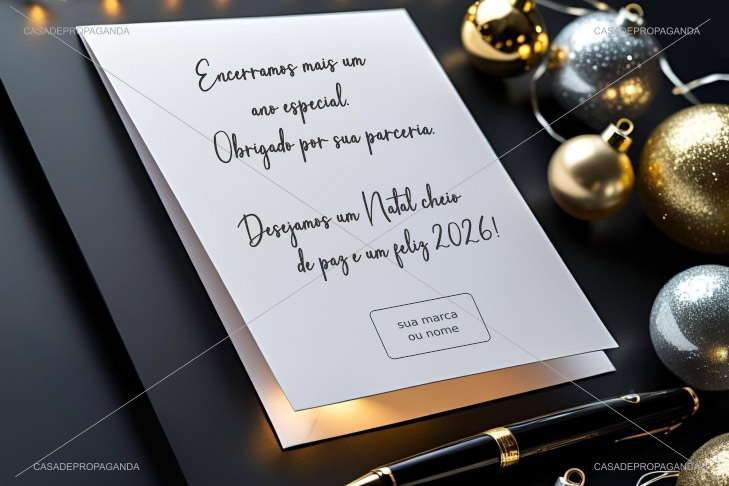 CASADEPROPAGANDA
CASADEPROPAGANDA
Encerramos mais um
ano especial.
Obrigado por sua parceria.
Desejamos um Natal cheio
de paz e um feliz 2026!
sua marca
ou nome
CASADEPROPAGANDA
CASADEPROPAGANDA